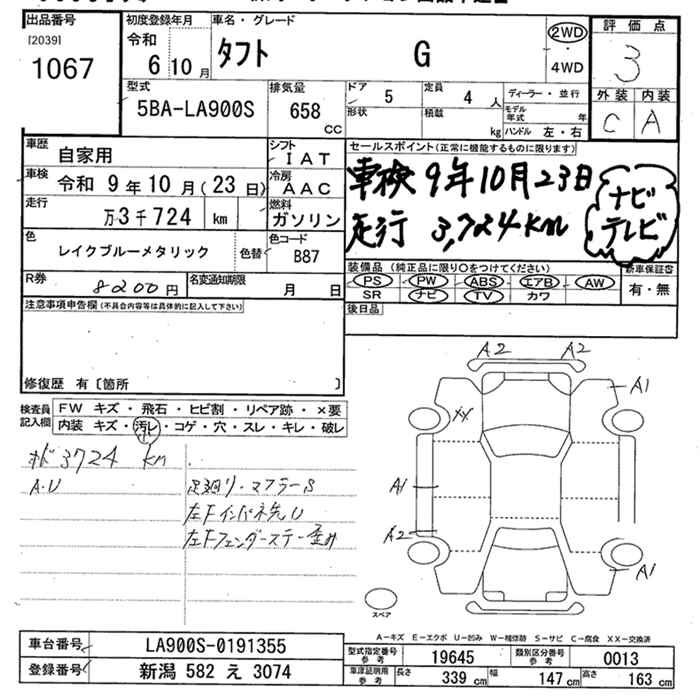 出品番号
[2039]
1067
初度登録年月
令和
6 10 月
車名・グレード
タフト G
2WD
・
4WD
評価点
3
外装 内装
C A
型式
5BA-LA900S
排気量
658
CC
ドア
5
定員
4 人
形状
積載
kg
ディーラー・並行
モデル年式 年
ハンドル 左・右
車歴
自家用
シフト
I A T
車検
令和 9 年 10 月 ( 23 日)
冷房
A A C
走行
万 3 千 724 km
燃料
ガソリン
色
レイクブルーメタリック
色替
色コード
B87
R券
8200 円
名変通知期限
月 日
セールスポイント(正常に機能するものに限ります)
車検 9年10月23日
走行 3,724km
ナビ
テレビ
装備品 (純正品に限り○をつけてください)
新車保証書
PS PW ABS エアB AW
有・無
SR ナビ TV カワ
後日品
注意事項申告欄(不具合内容等は具体的に記入して下さい)
修復歴 有〔箇所 〕
検査員
記入欄
FW キズ・飛石・ヒビ割・リペア跡・×要
内装 キズ・汚レ・コゲ・穴・スレ・キレ・破レ
3724 km
A・U
足廻り・マフラーS
左Fインパネ先U
左Fフェンダーステー歪み
A2 A2
A1
XX
A1
A2
A1
スペア
A-キズ E-エクボ U-凹み W-補修跡 S-サビ C-腐食 XX-交換済
車台番号
LA900S-0191355
登録番号
新潟 582 え 3074
型式指定番号
参考
19645
類別区分番号
参考
0013
車庫証明用
参考
長さ
339 cm
幅
147 cm
高さ
163 cm